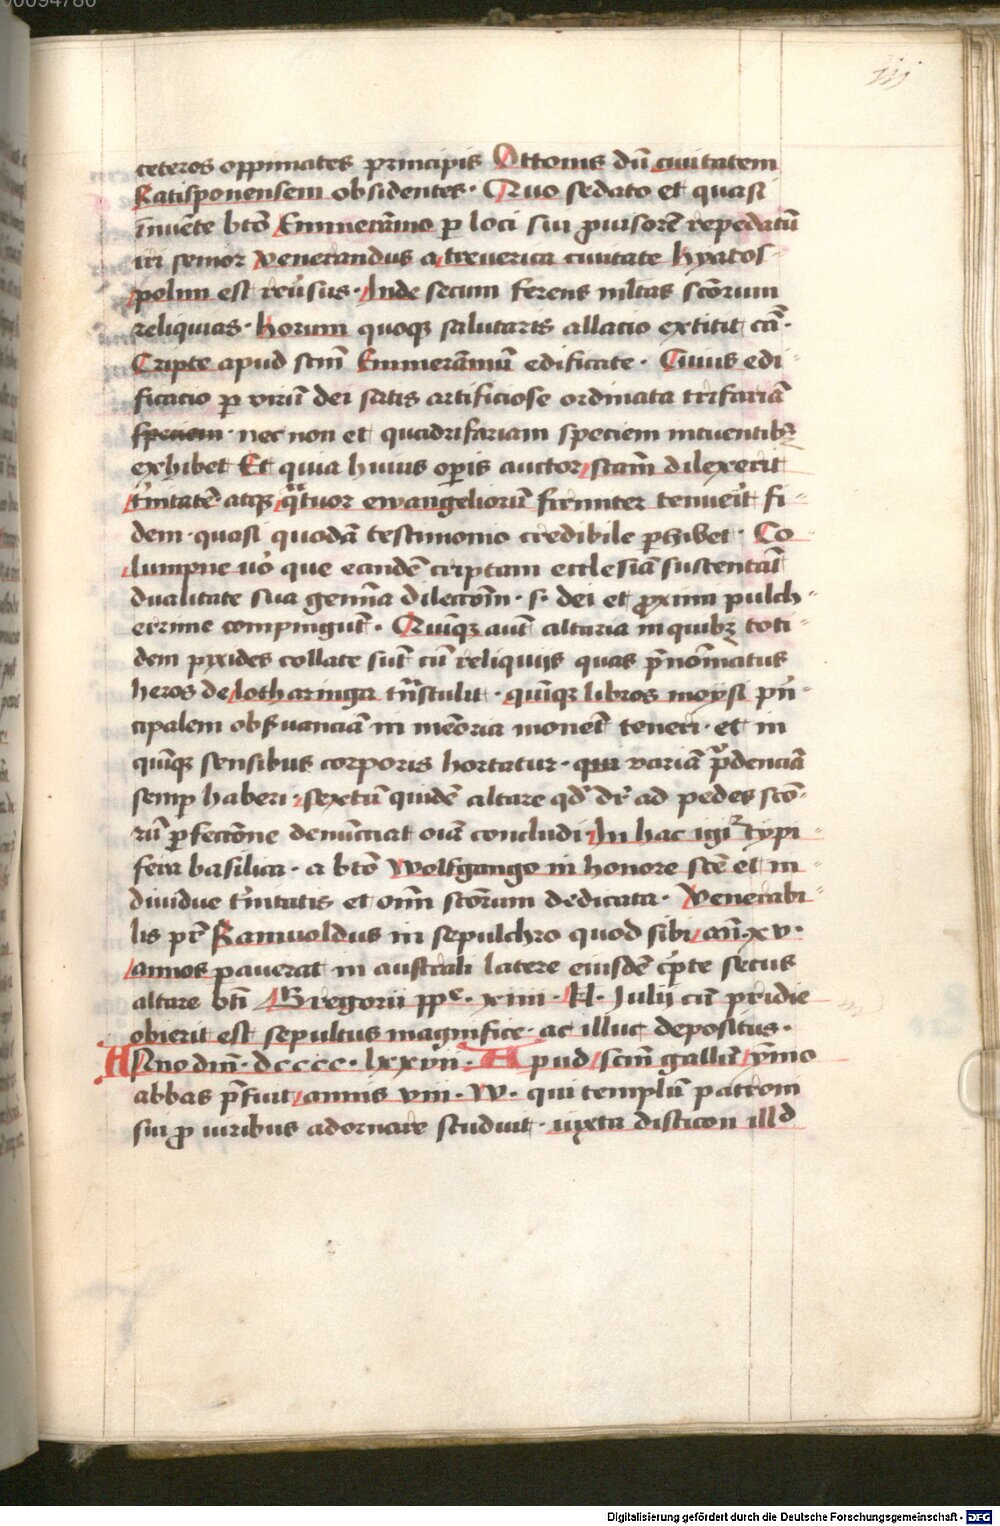 00094780
iij
ceteros oppimates principis Ottonis dū ciuitatem
Ratisponensem obsidentes · Quo sedato et quasi
īnuēte btō Emmerāmo ꝑ loci sui ꝓuisorē repedatū
iri senior venerandus a treuerica ciuitate hyatos-
polim est reu͛sus · Inde secum ferens mltas scōrum
reliquias · horum quoqꝫ salutaris allacio extitit cā ·
Cripte apud scm̄ Emmerāmū edificate · Cuius edi-
ficacio ꝑ virū dei satis artificiose ordinata trifariā
speciem · nec non et quadrifariam speciem intuentibꝫ
exhibet Et quia huius oꝑis auctor scām dilexerit
t͛nitatē · atqꝫ qᵃtuor ewangeliorū firmiter tenuerit fi-
dem · quasi quodā testimonio credibile ꝑhibet · Co-
lumpne uo͛ que eandē criptam ecclesiā sustentāt
dualitate sua gemīa dilectōm̄ · s · dei et ꝓximi pulch-
errime compingūt · Quīqꝫ aut̄ altaria in quibꝫ toti-
dem pixides collate sūt cū reliquijs quas p̄nomīatus
heros de lotharinga tᵃnstulit · quīqꝫ libros moysi prī-
cipalem obs͛uanciā in memōria monet teneri · et in
quīqꝫ sensibus corporis hortatur · qui variā pᵘdenciā
semꝑ haberi · sextū quidē altare qd' dr̄ ad pedes scō-
rū ꝑfectōne denūciat oīa concludi In hac igiᵗ typi-
feia basilica · a btō Wolfgango in honore scē et in-
diuidue t͛nitatis et om̄ scōrum dedicata · Venerabi-
lis pr̄ Ramuoldus in sepulchro quod sibi an̄ · xv ·
annos pauerat in australi latere eiusdē cͥpte secus
altare btī Gregorii ppᵉ · xiiii · kl · Julij cū pridie
obierit est sepultus magnifice · ac illuc depositus ·
Anno dnī · dcccc · lxxvii · Apud scm̄ gallū ymo
abbas p̄fuit annis viii · W · qui templū patroni
sui ꝓ uiribus adornare studuit · iuxta disticon illd
Digitalisierung gefördert durch die Deutsche Forschungsgemeinschaft - DFG